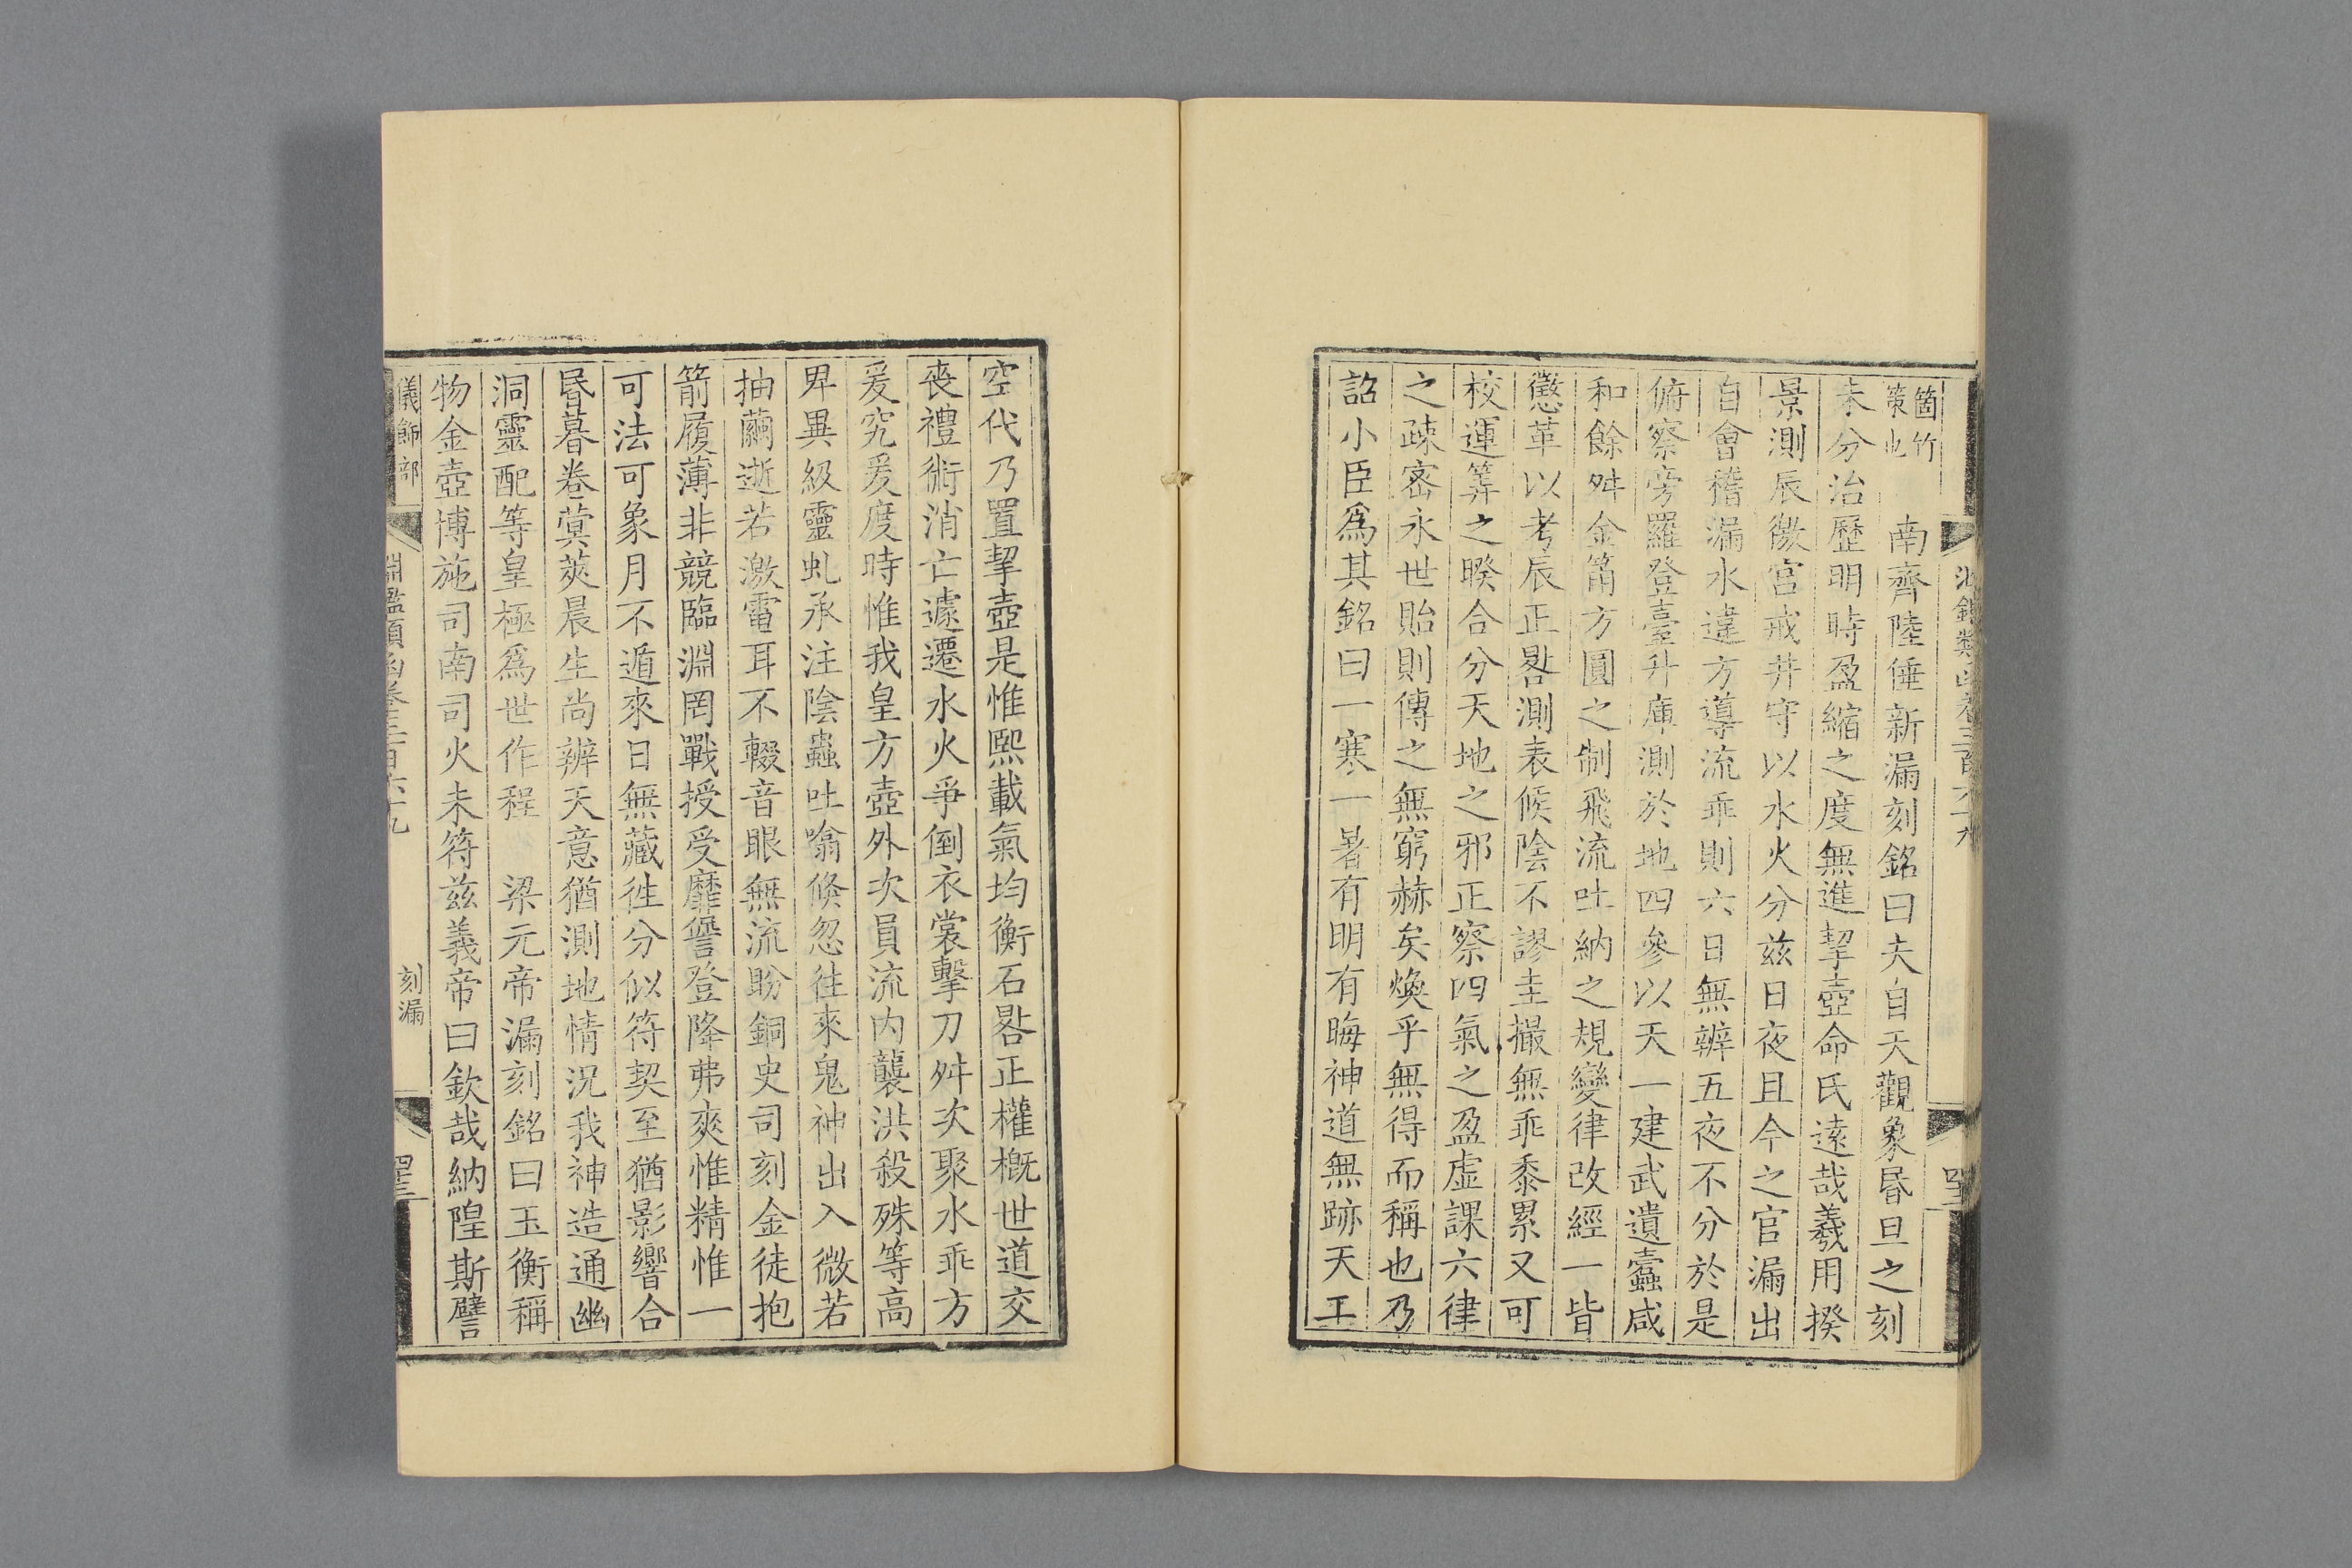 箇竹
策也
南齊陸倕新漏刻銘曰夫自天觀象昏旦之刻
未分治歷明時盈縮之度無進挈壺命氏遠哉羲用揆
景測辰徼宮戒井守以水火分茲日夜且今之官漏出
自會稽漏水違方導流乖則六日無辨五夜不分於是
俯察旁羅登臺升庫測於地四參以天一建武遺蠹咸
和餘舛金筩方圓之制飛流吐納之規變律改經一皆
懲革以考辰正晷測表候陰不謬圭撮無乖黍累又可
校運筭之睽合分天地之邪正察四氣之盈虛課六律
之疎密永世貽則傳之無窮赫矣煥乎無得而稱也乃
詔小臣爲其銘曰一寒一暑有明有晦神道無跡天工
空代乃置挈壺是惟熙載氣均衡石晷正權概世道交
喪禮術消亡遽遷水火爭倒衣裳擊刀舛次聚水乖方
爰究爰度時惟我皇方壺外次員流内襲洪殺殊等高
卑異級靈虬承注陰蟲吐噏倏忽往來鬼神出入微若
抽繭逝若激電耳不輟音眼無流盼銅史司刻金徒抱
箭履薄非競臨淵罔戰授受靡諐登降弗爽惟精惟一
可法可象月不遁來日無藏徃分似符契至猶影響合
昏暮卷蓂莢晨生尚辨天意猶測地情況我神造通幽
洞靈配等皇極爲世作程　梁元帝漏刻銘曰玉衡稱
物金壺博施司南司火未符茲義帝曰欽哉納隍斯譬
儀飾部
淵鑑類函卷三百六十九
刻漏